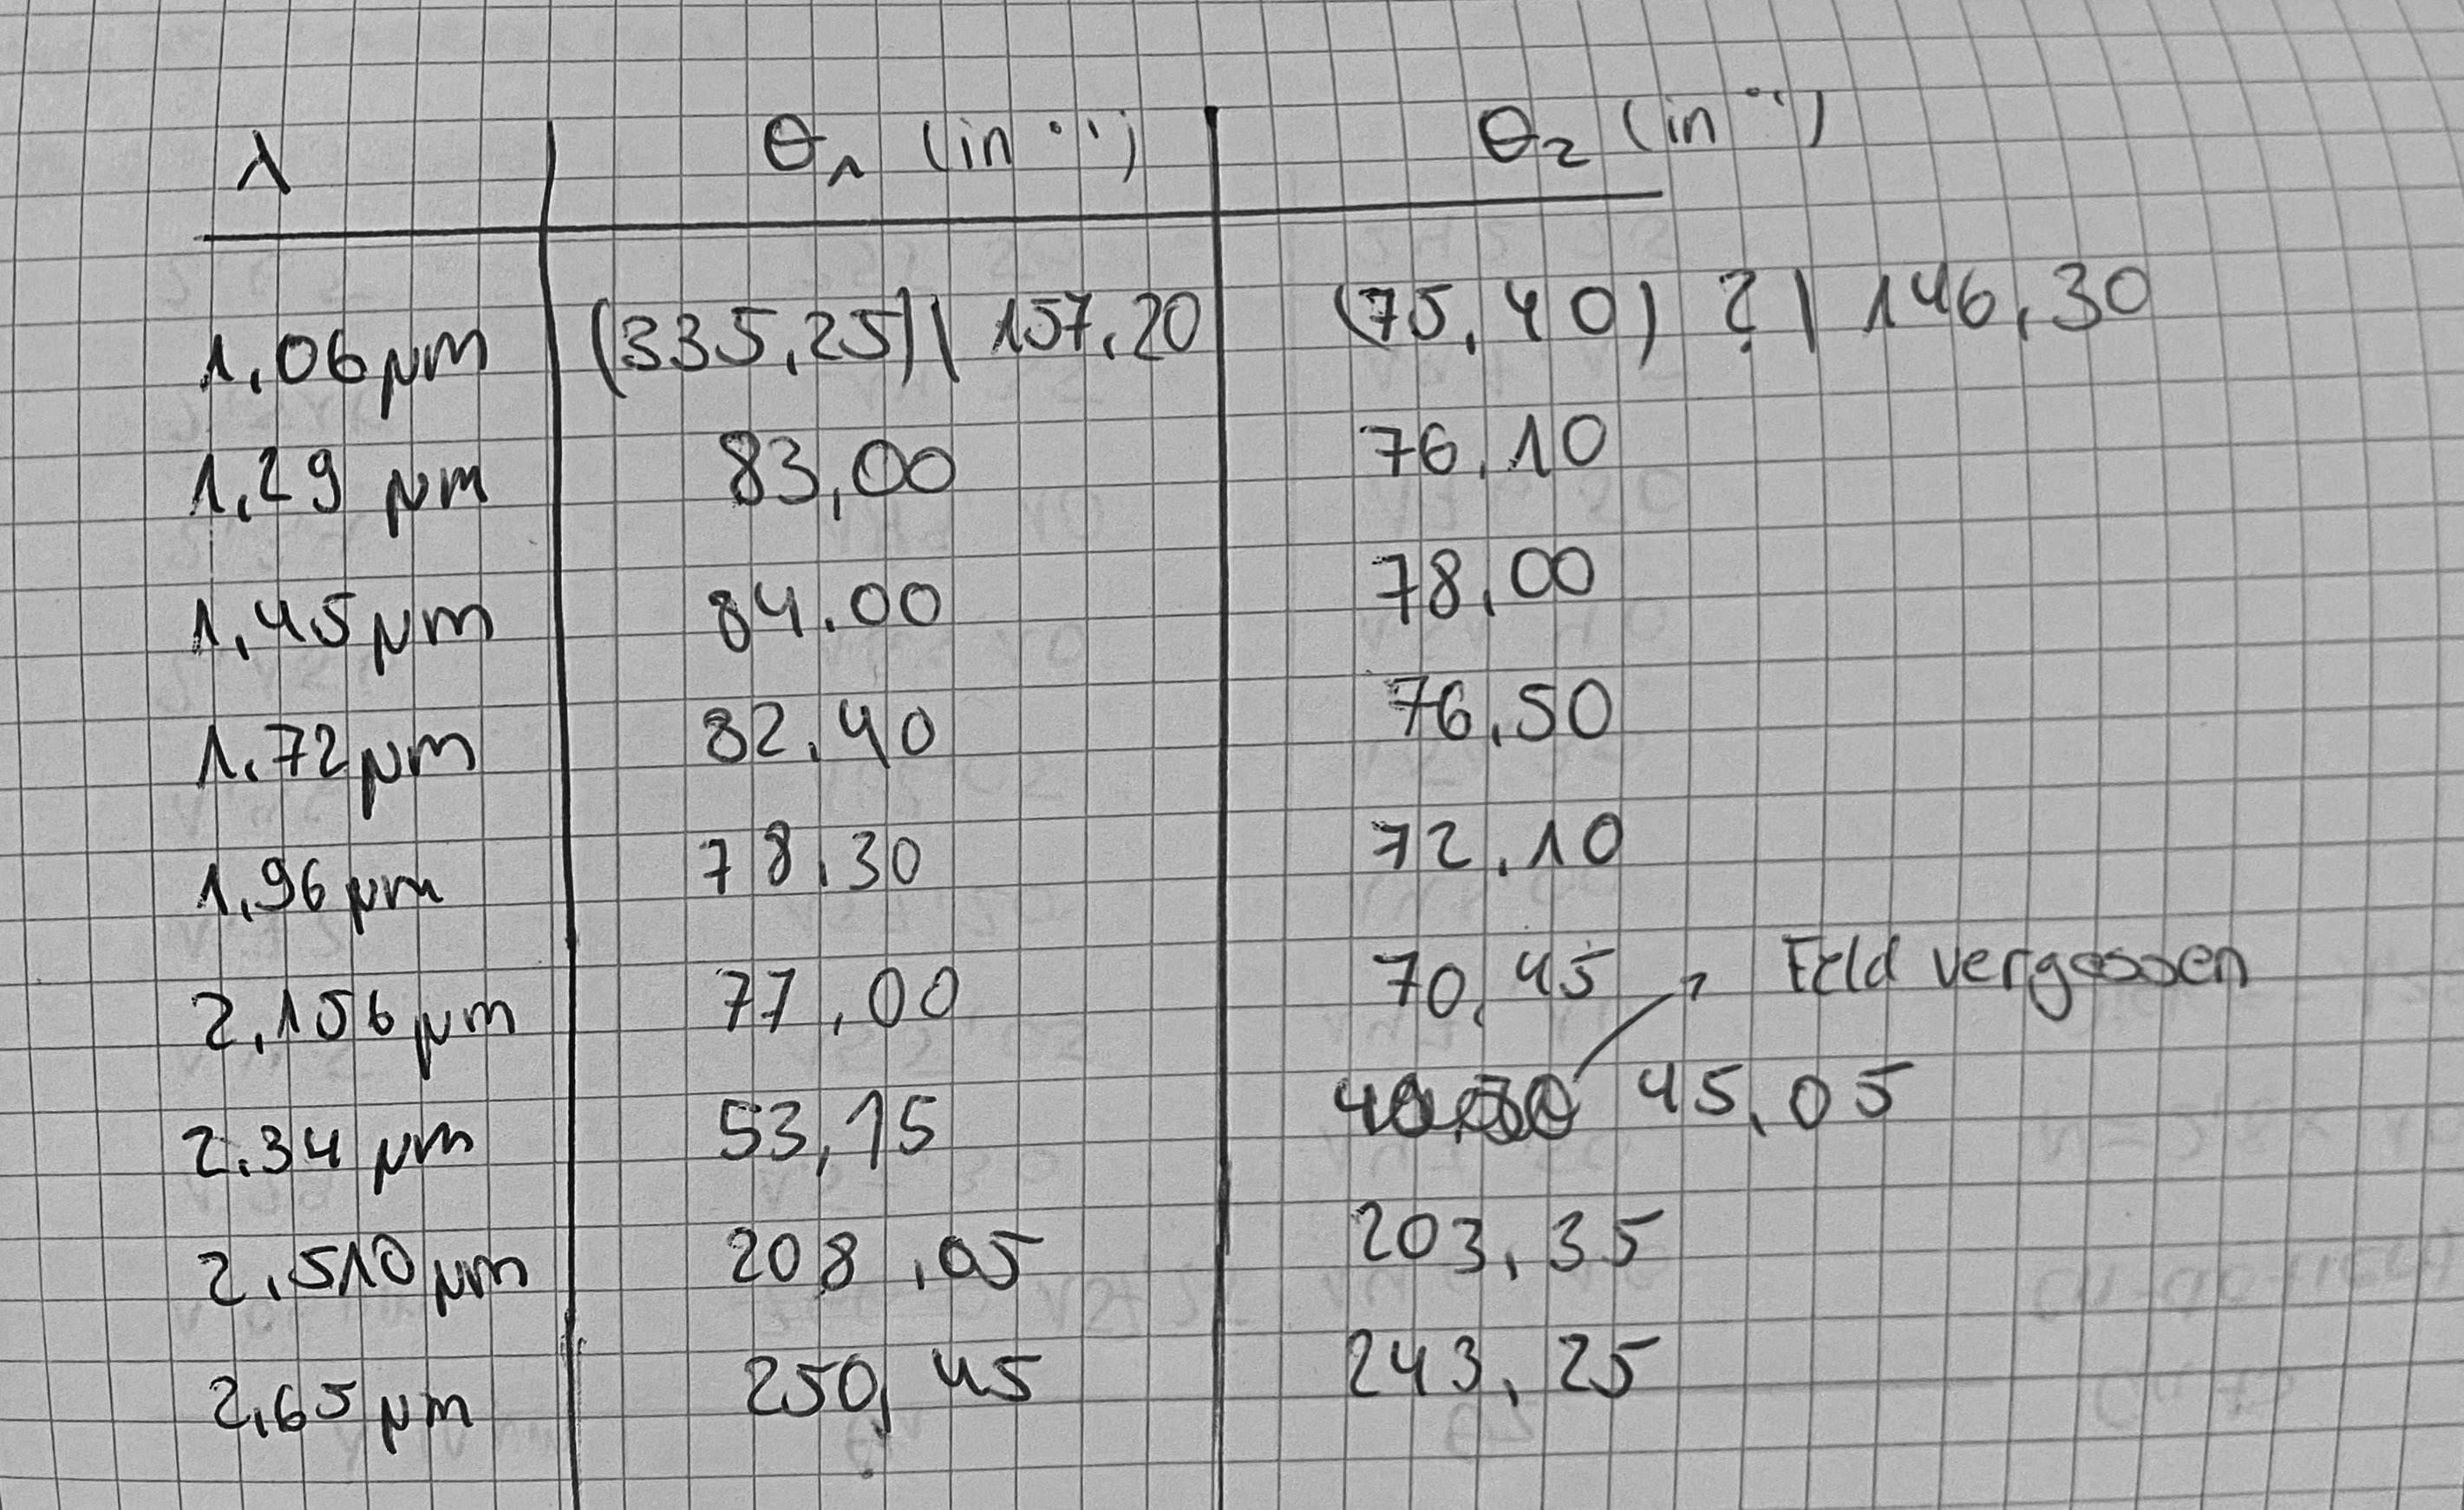 λ θ₁ (in °') θ₂ (in °')
1,06 μm (335,25) | 157,20 (75,40) ? | 146,30
1,29 μm 83,00 76,10
1,45 μm 84,00 78,00
1,72 μm 82,40 76,50
1,96 μm 78,30 72,10
2,156 μm 77,00 70,45 → Feld vergessen
2,34 μm 53,15 45,05
2,510 μm 208,05 203,35
2,65 μm 250,45 243,25